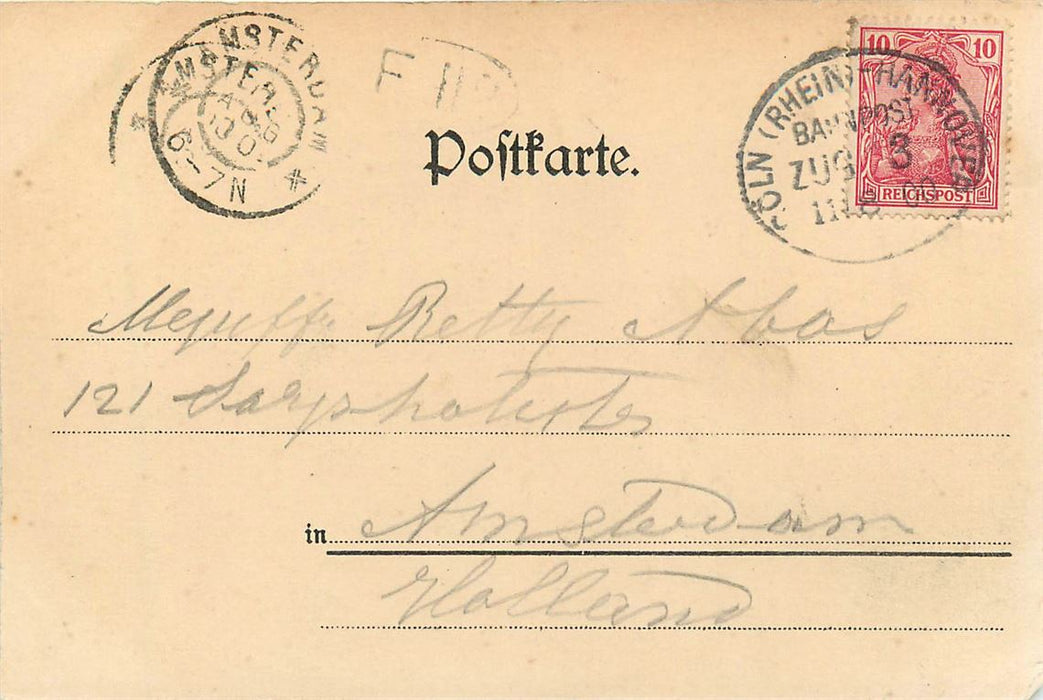 AMSTERDAM
AMSTER
AUG
6-7N
F
Postkarte.
CÖLN (RHEIN)-HANNOVER
BAHNPOST
ZUG 3
10 10
REICHSPOST
Mejuffr Betty Abas
121 Sarphatistr
in Amsterdam
Holland